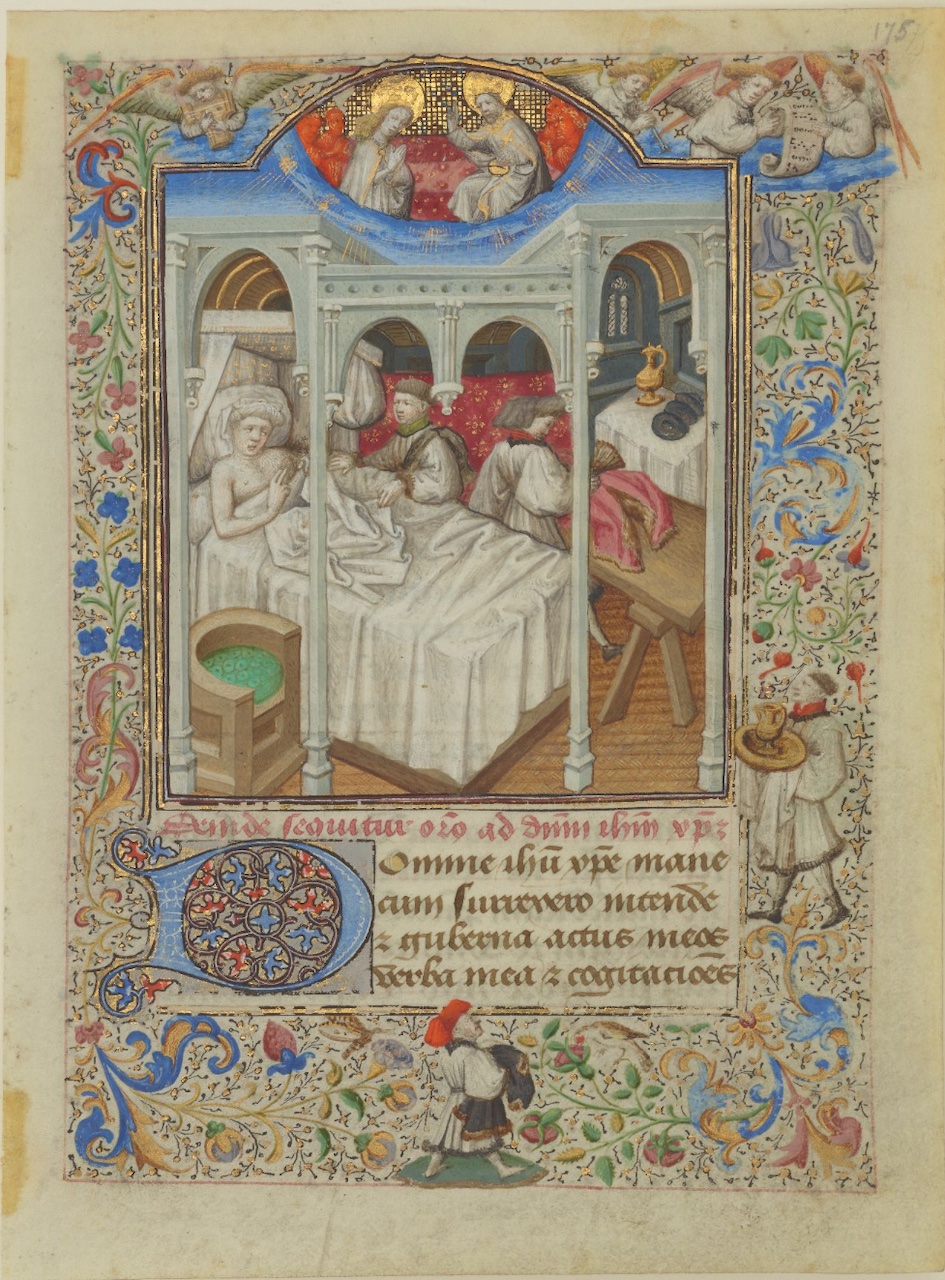 175
Deinde sequitur or̄o ad dn̄m ihm̄ xp̄z
Domine ihū xp̄e mane
cum surrexero intende
⁊ guberna actus meos
verba mea ⁊ cogitacioēs